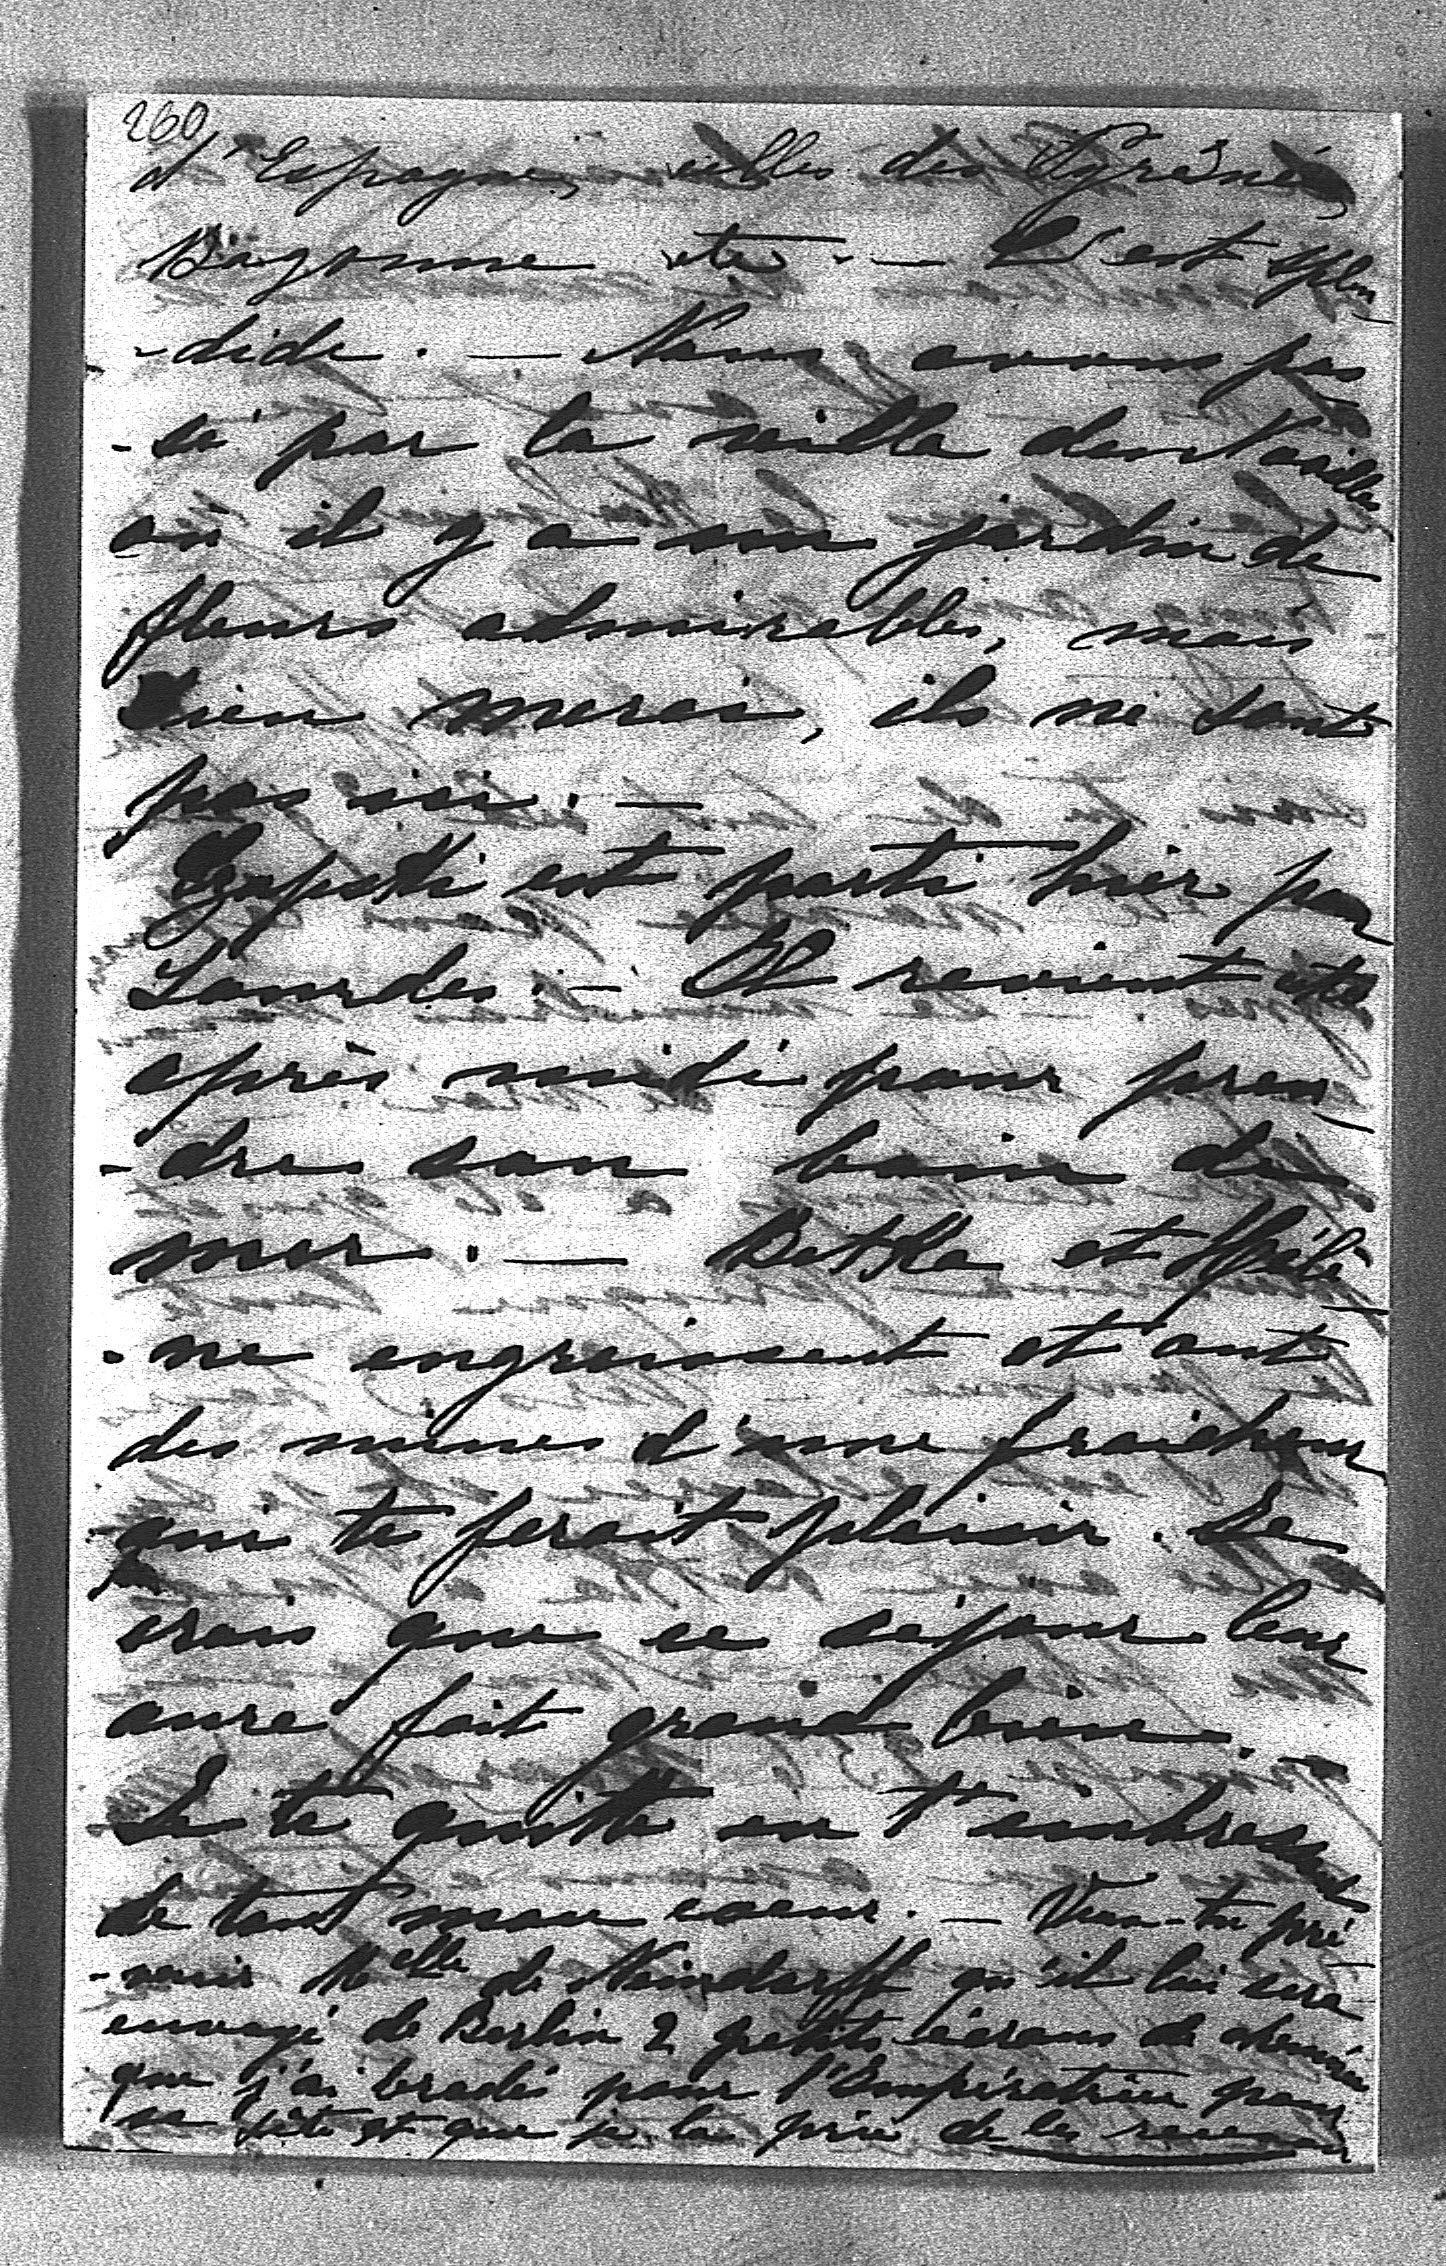 260
d'Espagne, celles des Pyrénées,
Bayonne etc. — C'est splen
-dide. — Nous avons pas
-sé par la villa des
où il y a un jardin de
fleurs admirables, mais
Dieu merci, ils ne sont
pas ici. —
est parti hier pour
Lourdes. — Il revient cet
après midi pour pren
-dre son bain de
mer. — Betka et Hélè
-ne engraissent et ont
des mines d'une fraicheur
qui te ferait plaisir. Je
crois que ce séjour leur
aura fait grand bien.
Je te quitte en t'embrassant
de tout mon coeur. — Veux-tu pré
-venir Melle de qu'il lui sera
envoyé de Berlin 2 petits écrans de cheminée
que j'ai brodés pour l'Impératrice pour
sa fête et que je la prie de les recevoir